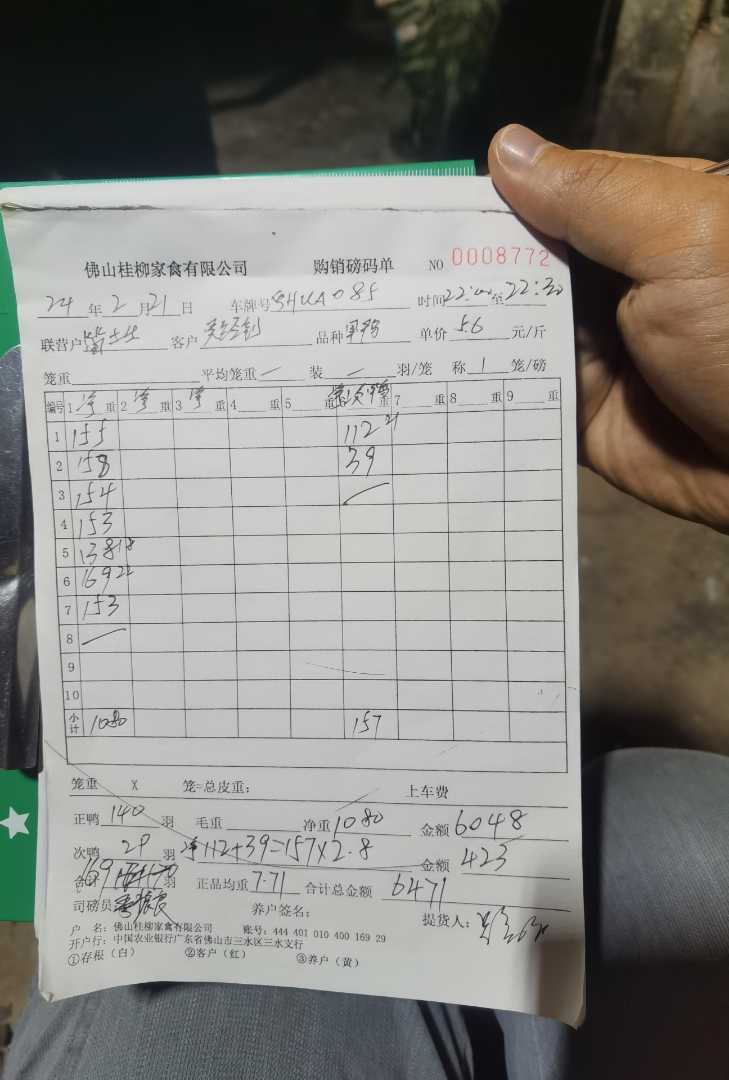 佛山桂柳家禽有限公司 购销磅码单 NO 0008772
24 年 2 月 21 日 车牌号 085 时间 22:00 至 22:30
联营户 客户 品种 单价 5.6 元/斤
笼重 平均笼重 — 装 — 羽/笼 称 1 笼/磅
编号 1 净 重 2 净 重 3 净 重 4 重 5 重 6 重 7 重 8 重 9 重
1 155 112 21
2 158 39
3 154
4 153
5 138 18
6 169 22
7 153
8 —
9
10
小计 1080 157
笼重 X 笼=总皮重: 上车费
正鸭 140 羽 毛重 净重 1080 金额 6048
次鸭 29 羽 净 112+39=157×2.8 金额 423
合计 169 羽 正品均重 7.71 合计总金额 6471
司磅员 养户签名: 提货人:
户 名: 佛山桂柳家禽有限公司 账号: 444 401 010 400 169 29
开户行: 中国农业银行广东省佛山市三水区三水支行
①存根(白) ②客户(红) ③养户(黄)